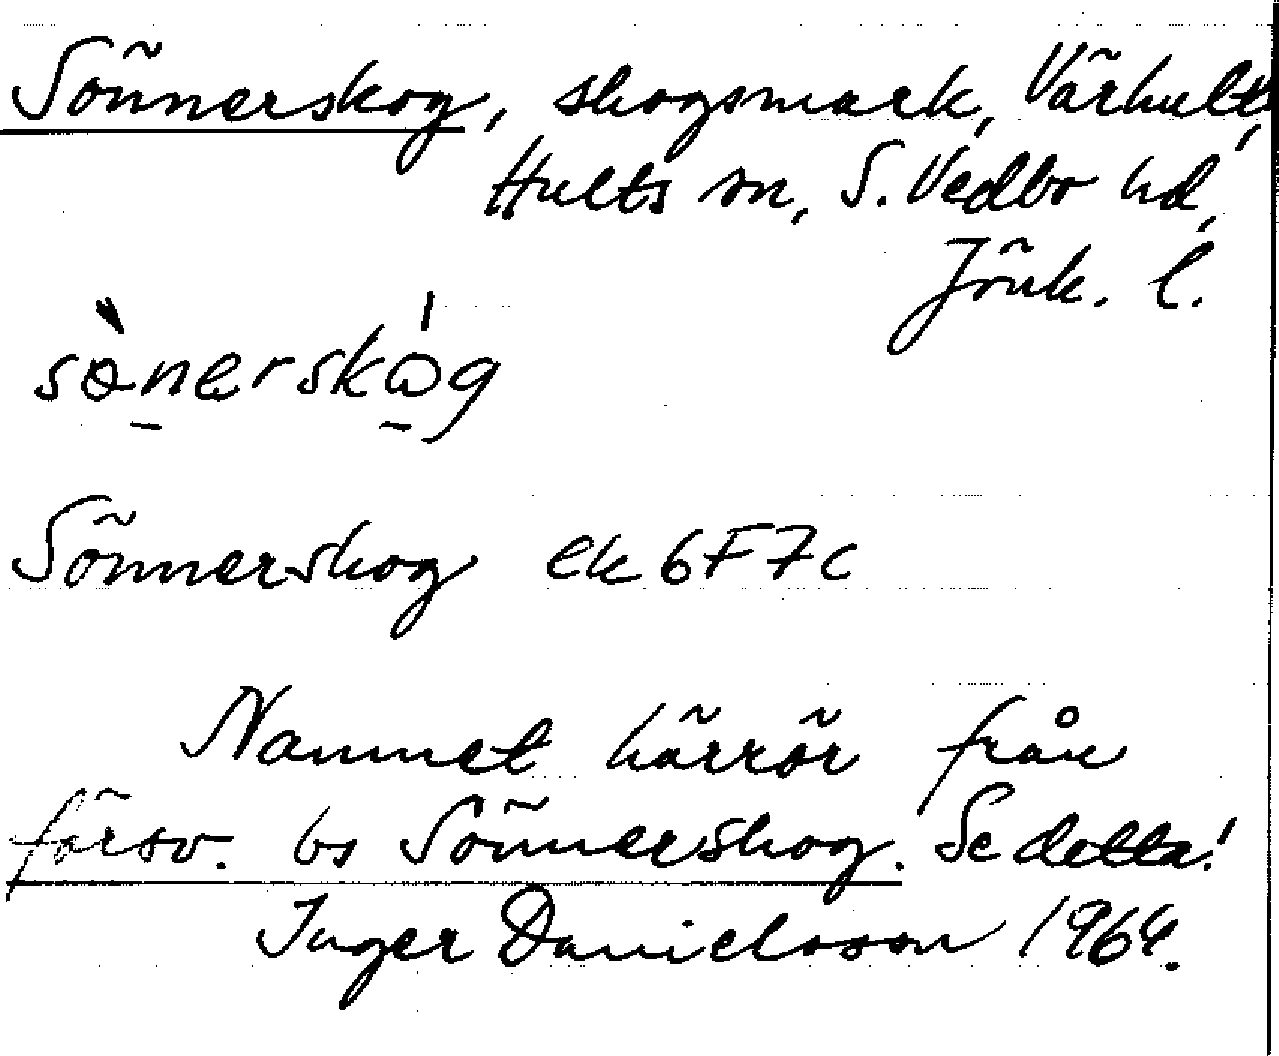 Sönnerskog, skogsmark, Värhult,
Hults sn, S. Vedbo hd,
Jönk. l.
Sönnerskog ek 6F7c
Namnet härrör från
försv. bs Sönnerskog. Se detta!
Inger Danielsson 1964.